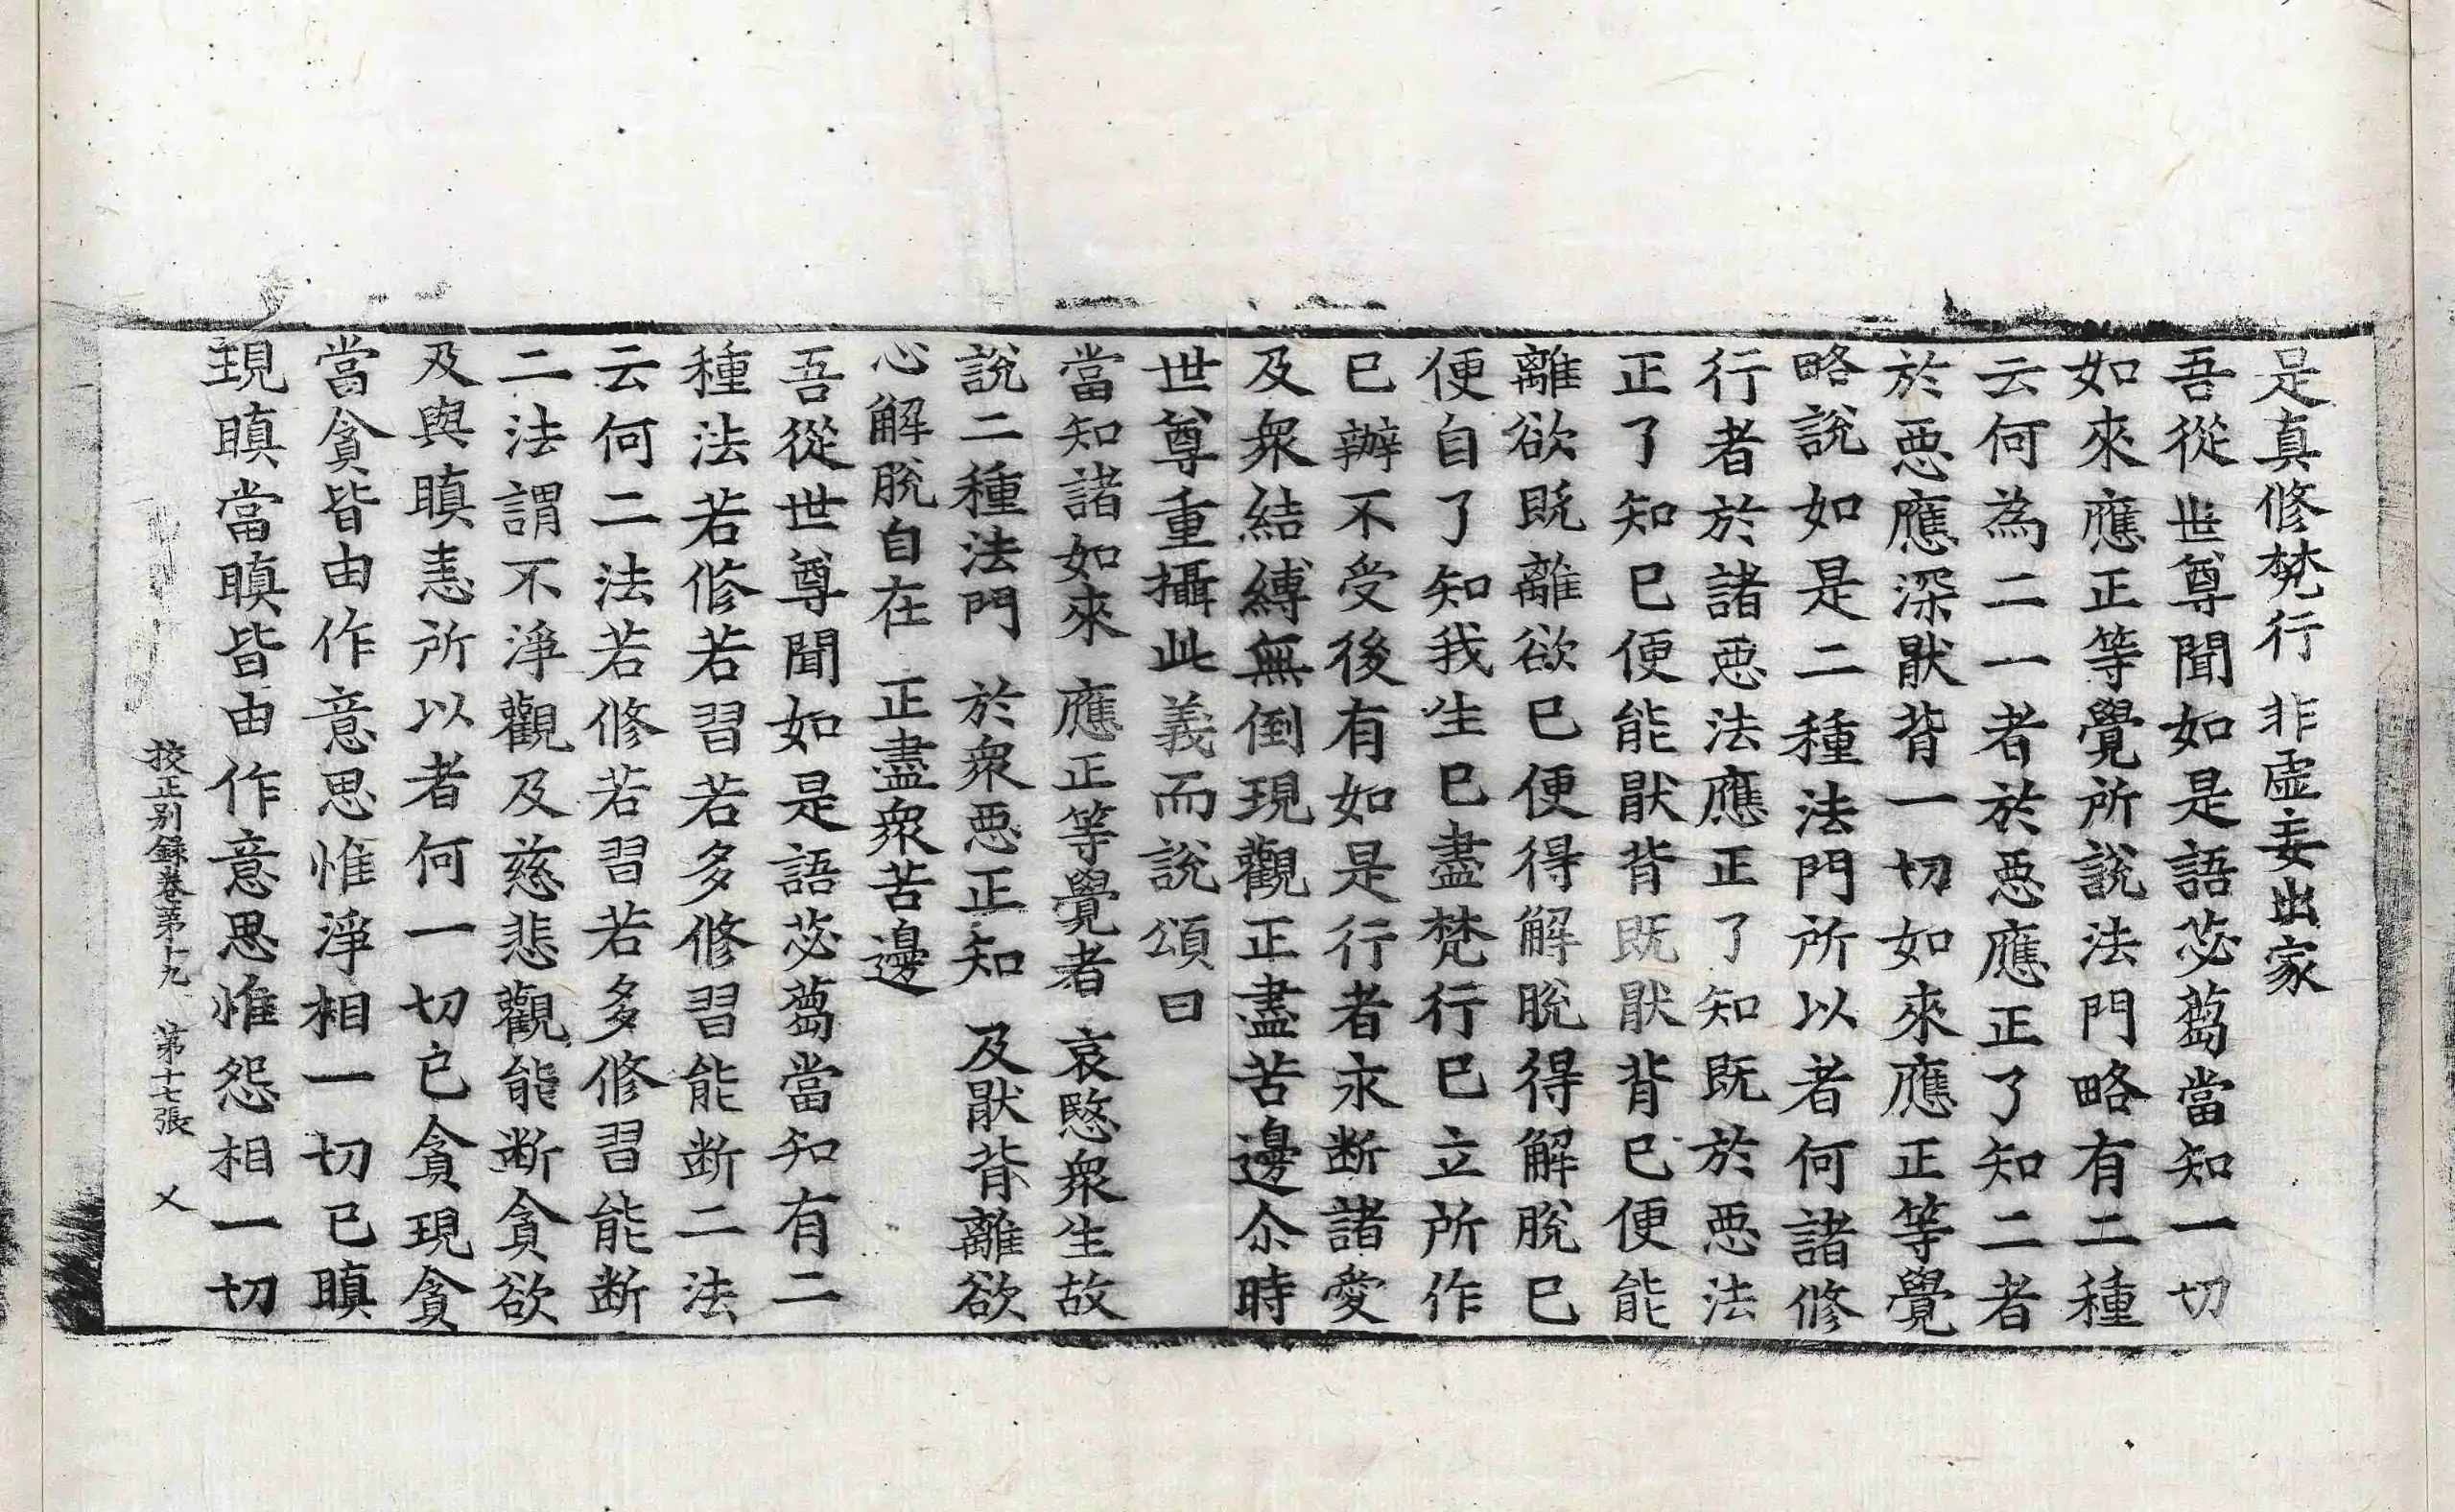 是真修梵行 非虚妄出家
吾從世尊聞如是語苾蒭當知一切
如來應正等覺所說法門略有二種
云何為二一者於惡應正了知二者
於惡應深猒背一切如來應正等覺
略說如是二種法門所以者何諸修
行者於諸惡法應正了知既於惡法
正了知已便能猒背既猒背已便能
離欲既離欲已便得解脫得解脫已
便自了知我生已盡梵行已立所作
已辦不受後有如是行者永断諸愛
及衆結縛無倒現觀正盡苦邊尒時
世尊重攝此義而說頌曰
當知諸如來 應正等覺者 哀愍衆生故
說二種法門 於衆惡正知 及猒背離欲
心解脫自在 正盡衆苦邊
吾從世尊聞如是語苾蒭當知有二
種法若修若習若多修習能断二法
云何二法若修若習若多修習能断
二法謂不淨觀及慈悲觀能断貪欲
及與瞋恚所以者何一切已貪現貪
當貪皆由作意思惟淨相一切已瞋
現瞋當瞋皆由作意思惟怨相一切
挍正别録卷第十九 第十七張 乂